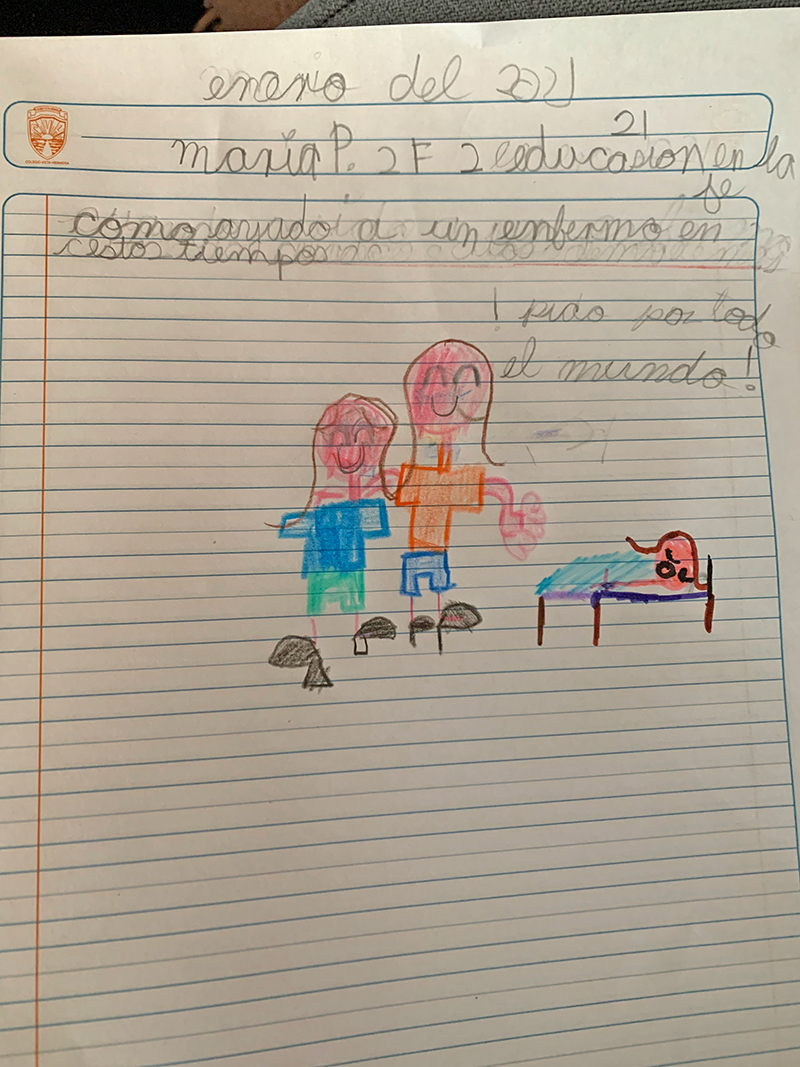 enerio del 2021
21
maria P. 2F 2 eeducasion en la
fe
como ayado a un enfermo en
estos tiempos
! pido por todo
el mundo!